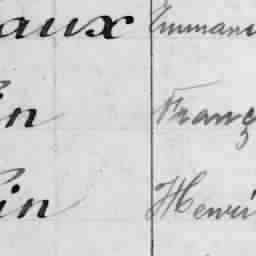 aux Emmanu
in Franç
in Henri